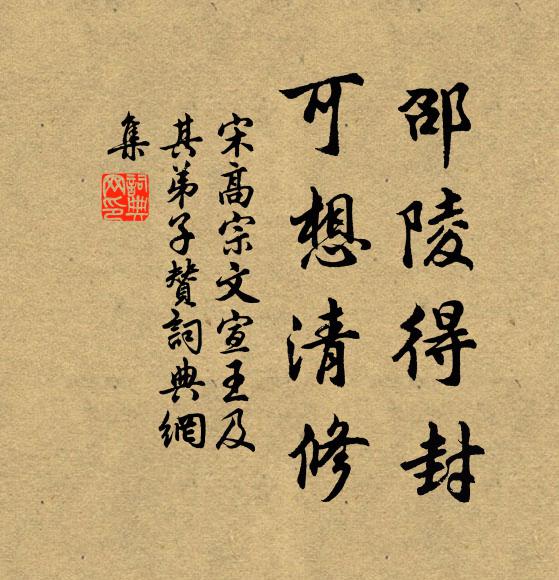 邵陵得封
可想清修
宋高宗文宣王及
其弟子贊詞典網
集
詞典網印